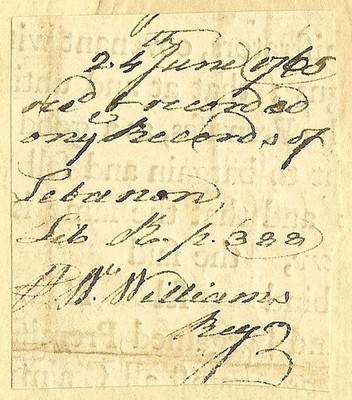 24th June 1765
recd & recorded
on ye Records of
Lebanon,
Lib K. p. 322
Wm. Williams
Regr